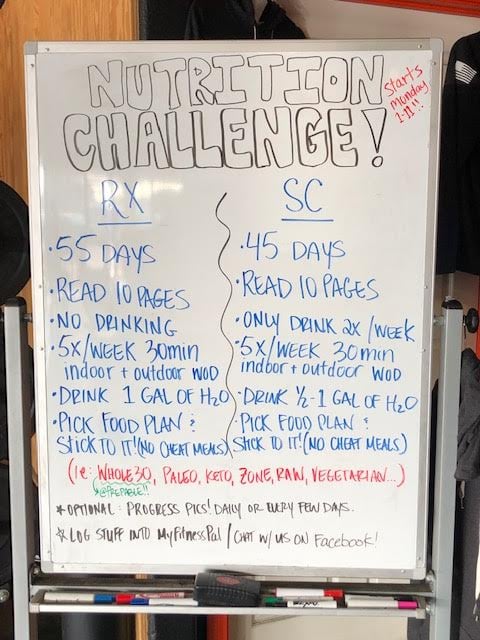 NUTRITION
CHALLENGE!
Starts
monday
1-11!!
RX
· 55 DAYS
· READ 10 PAGES
· NO DRINKING
· 5x/WEEK 30min
indoor + outdoor WOD
· DRINK 1 GAL OF H2O
· PICK FOOD PLAN &
STICK TO IT! (NO CHEAT MEALS)
SC
· 45 DAYS
· READ 10 PAGES
· ONLY DRINK 2X/WEEK
· 5x/WEEK 30min
indoor + outdoor WOD
· DRINK ½-1 GAL OF H2O
· PICK FOOD PLAN &
STICK TO IT! (NO CHEAT MEALS)
(ie: WHOLE30, PALEO, KETO, ZONE, RAW, VEGETARIAN...)
@PREPABLE!!
* OPTIONAL: PROGRESS PICS! DAILY OR EVERY FEW DAYS.
* LOG STUFF INTO MyFitnessPal / CHAT W/ US ON Facebook!